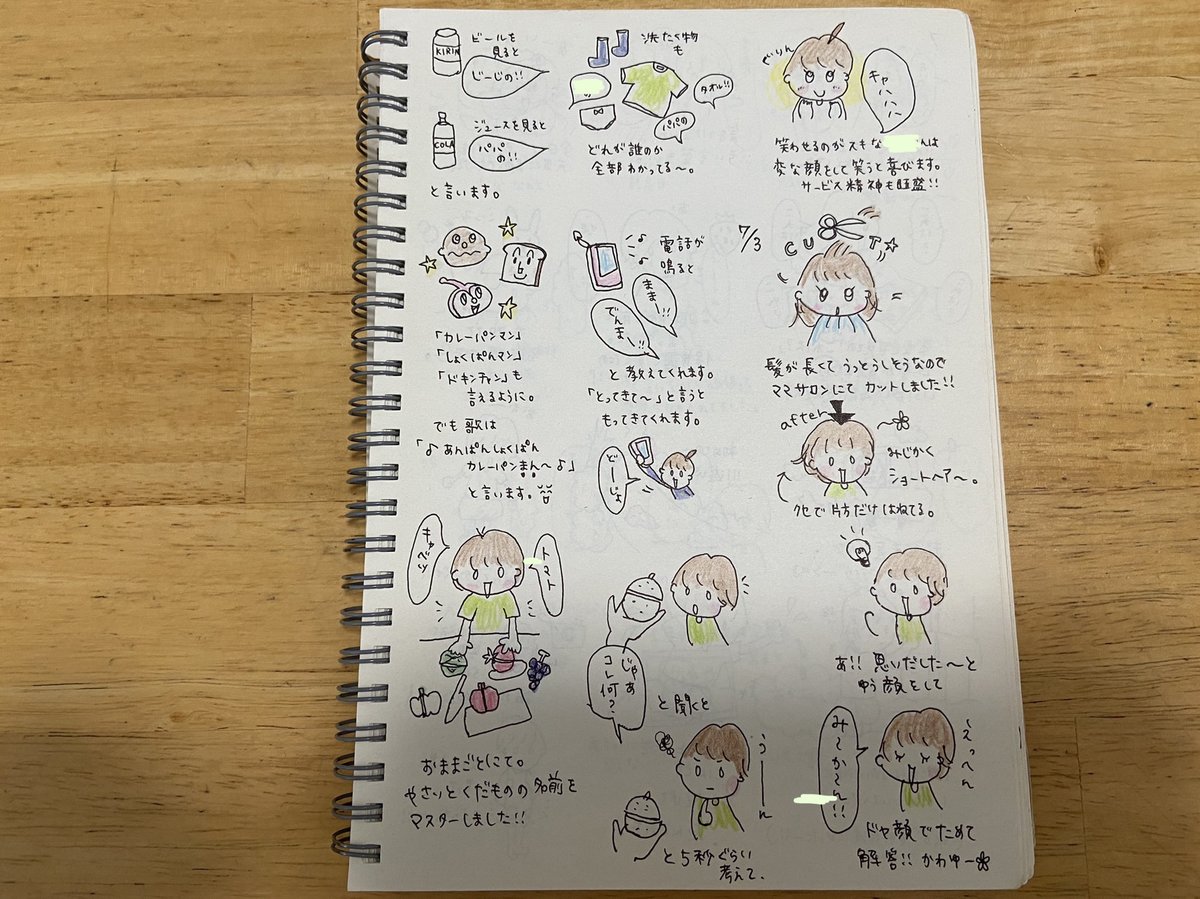 KIRIN
ビールを
見ると
じーじの!!
COLA
ジュースを見ると
パパ
の!!
と言います。
「カレーパンマン」
「しょくぱんマン」
「ドキンチャン」も
言えるように。
でも歌は
「♪あんぱんしょくぱん
カレーパンまん〜♪」
と言います。
キャベツ
トマト
おままごとにて。
やさいとくだものの名前を
マスターしました!!
洗たく物
も
タオル!!
パパの
どれが誰のか
全部わかってる〜。
♪電話が
♪鳴ると
ままー!!
でんまー!!
と教えてくれます。
「とってきて〜」と言うと
もってきてくれます。
どーじょ
じゃあ
コレ何?
と聞くと
うーーん
と5秒ぐらい
考えて、
ぐりん
キャハハハー
笑わせるのがスキな
んは
変な顔をして笑うと喜びます。
サービス精神も旺盛!!
7/3
CUT☆
髪が長くてうっとうしそうなので
ママサロンにてカットしました!!
after
みじかく
ショートヘア〜。
クセで片方だけはねてる。
あ!!思いだした〜と
ゆう顔をして
み〜か〜ん!!
えっへん
ドヤ顔でためて
解答!!かわゆー